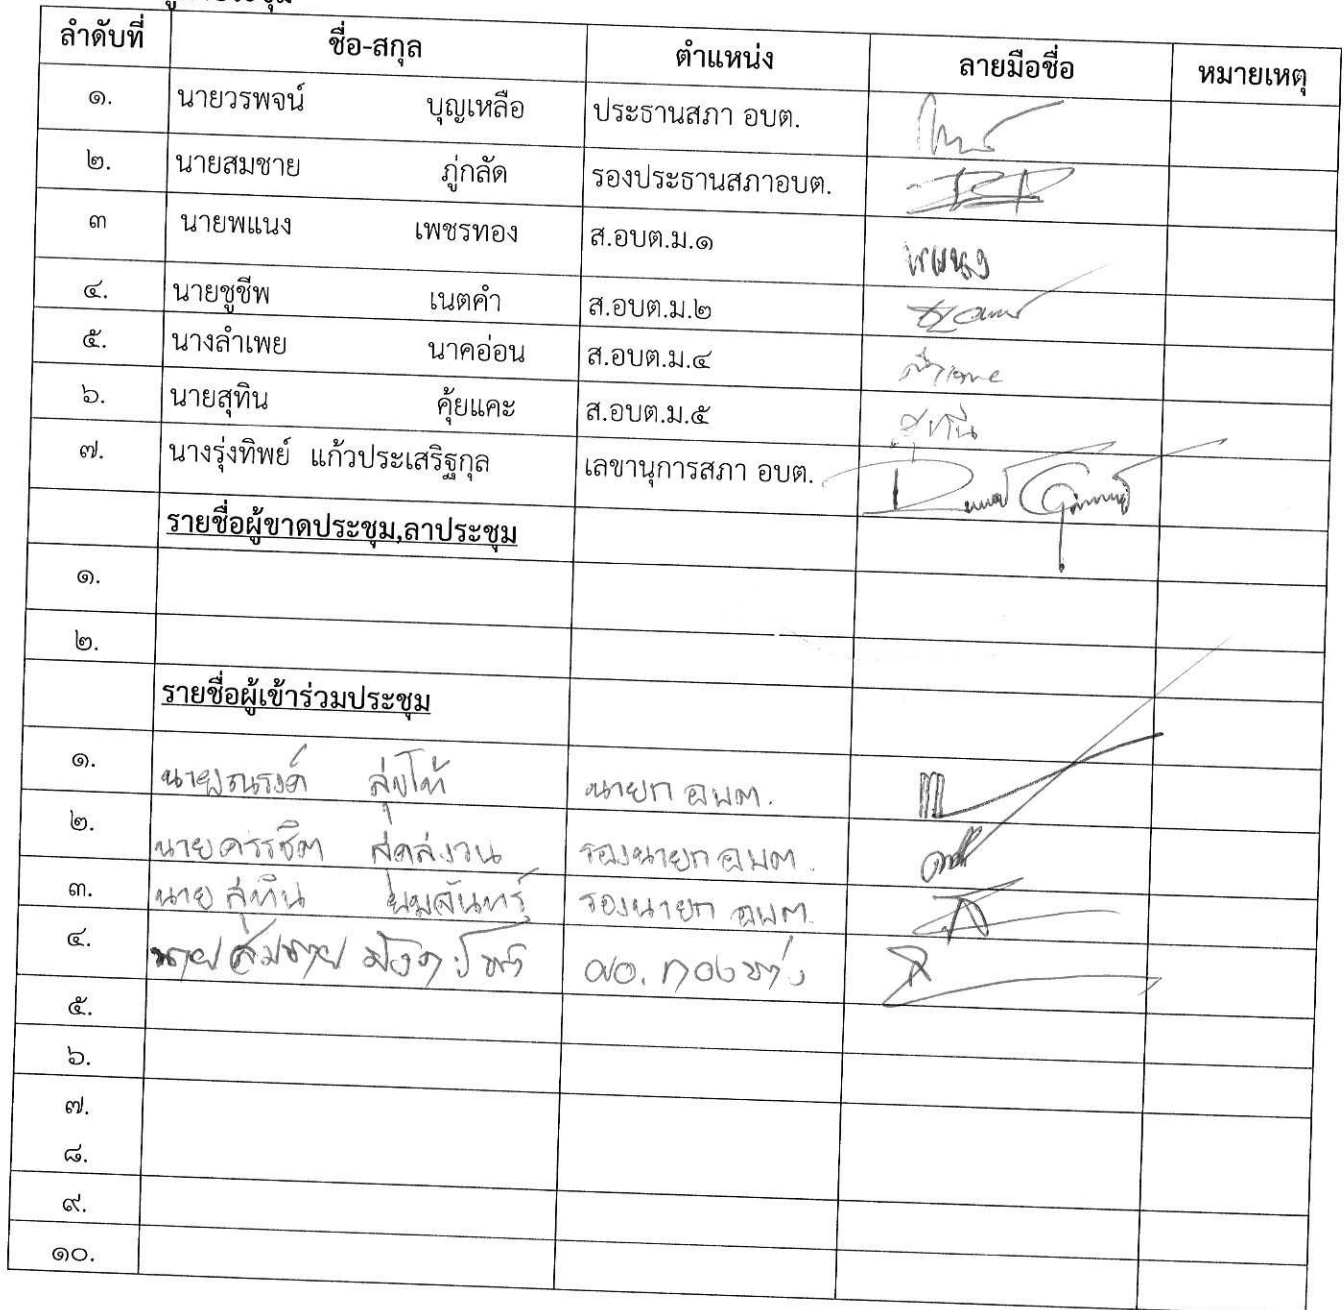 ลำดับที่ ชื่อ-สกุล ตำแหน่ง ลายมือชื่อ หมายเหตุ
๑. นายวรพจน์ บุญเหลือ ประธานสภา อบต.
๒. นายสมชาย ภู่กลัด รองประธานสภาอบต.
๓ นายพแนง เพชรทอง ส.อบต.ม.๑ พแนง
๔. นายชูชีพ เนตคำ ส.อบต.ม.๒
๕. นางลำเพย นาคอ่อน ส.อบต.ม.๔
๖. นายสุทิน คุ้ยแคะ ส.อบต.ม.๕ สุทิน
๗. นางรุ่งทิพย์ แก้วประเสริฐกุล เลขานุการสภา อบต.
รายชื่อผู้ขาดประชุม,ลาประชุม
๑.
๒.
รายชื่อผู้เข้าร่วมประชุม
๑. นายณรงค์ สุขโท้ นายก อบต.
๒. นายครรชิต สุดสงวน รองนายก อบต.
๓. นาย สุทิน รองนายก อบต.
๔. นายสมชาย ผอ. กองช่าง
๕.
๖.
๗.
๘.
๙.
๑๐.